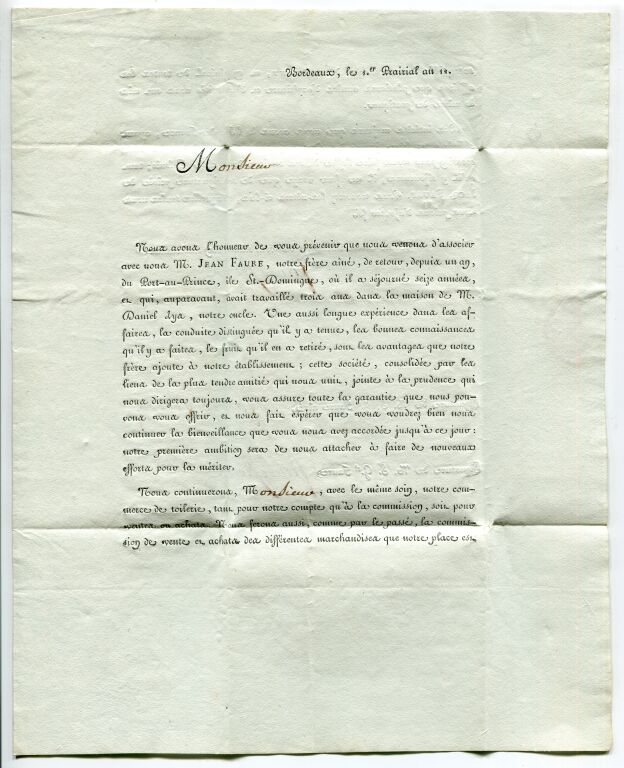 Bordeaux, le 1.er Prairial an 12.
Monsieur
Nous avons l'honneur de vous prévenir que nous venons d'associer
avec nous M. JEAN FAURE, notre frère aîné, de retour, depuis un an,
du Port-au-Prince, île St.-Domingue, où il a séjourné seize années,
et qui, auparavant, avait travaillé trois ans dans la maison de M.
Daniel Aya, notre oncle. Une aussi longue expérience dans les af-
faires, la conduite distinguée qu'il y a tenue, les bonnes connaissances
qu'il y a faites, le fruit qu'il en a retiré, sont les avantages que notre
frère ajoute à notre établissement ; cette société, consolidée par les
liens de la plus tendre amitié qui nous unit, jointe à la prudence qui
nous dirigera toujours, vous assure toute la garantie que nous pou-
vons vous offrir, et nous fait espérer que vous voudrez bien nous
continuer la bienveillance que vous nous avez accordée jusqu'à ce jour :
notre première ambition sera de nous attacher à faire de nouveaux
efforts pour la mériter.
Nous continuerons, Monsieur, avec le même soin, notre com-
merce de toilerie, tant pour notre compte qu'à la commission, soit pour
ventes ou achats. Nous ferons aussi, comme par le passé, la commis-
sion de vente et achats des différentes marchandises que notre place est